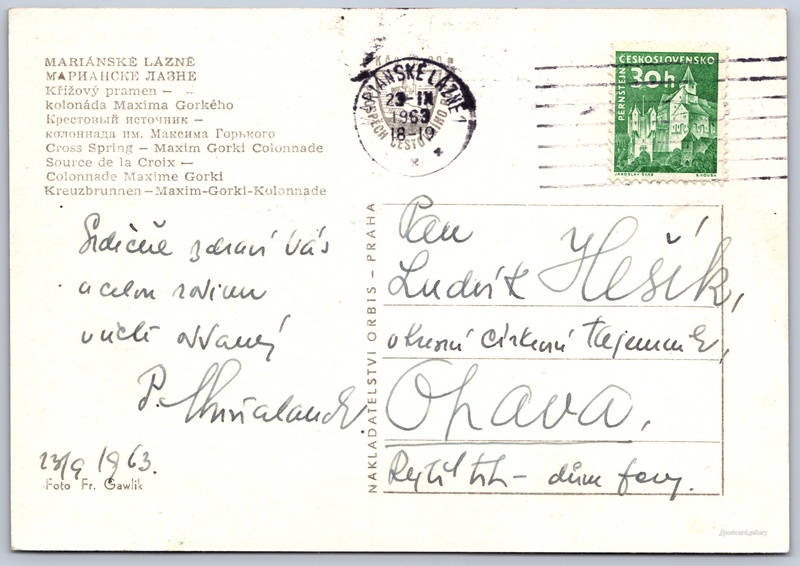 MARIÁNSKÉ LÁZNĚ
МАРИАНСКЕ ЛАЗНЕ
Křížový pramen –
kolonáda Maxima Gorkého
Крестовый источник –
колоннада им. Максима Горького
Cross Spring – Maxim Gorki Colonnade
Source de la Croix –
Colonnade Maxime Gorki
Kreuzbrunnen – Maxim-Gorki-Kolonnade
MARIÁNSKÉ LÁZNĚ 1
23-IX
1963
18-19
ČESKOSLOVENSKO
30h
PERNŠTEJN
JAROSLAV ŠVÁB
Srdečně zdraví Vás
a celou rodinu
v úctě oddaný
P.
23/9 1963.
Foto Fr. Gawlik
NAKLADATELSTVÍ ORBIS – PRAHA
Pan
Ludvík Hešík,
okresní církevní tajemník,
Opava,
Rytíř. trh – dům
postcard.gallery